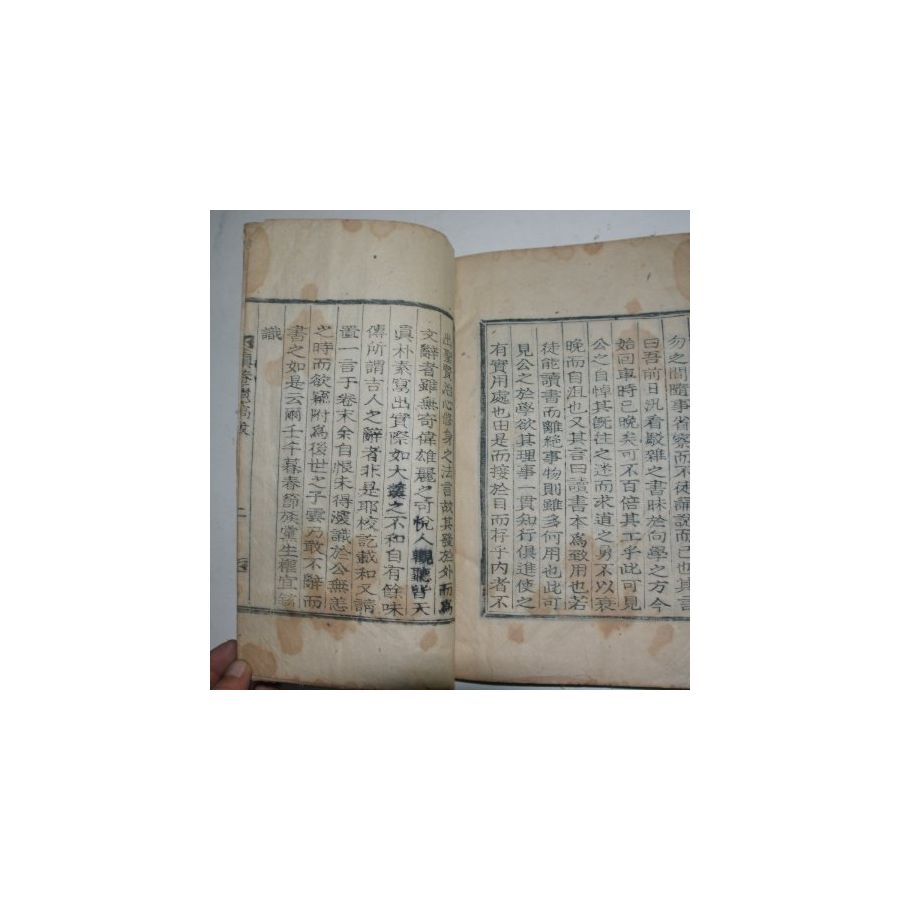 勿之間隨事省察而不徒誦說而已也其言
曰吾前日汎看駁雜之書昧於向學之方今
始回車時已晚矣可不百倍其工乎此可見
公之自悼其旣往之迷而求道之勇不以衰
晚而自沮也又其言曰讀書本爲致用也若
徒能讀書而離絶事物則雖多何用也此可
見公之於學欲其理事一貫知行俱進使之
有實用處也由是而接於目而存乎內者不
出聖賢治心修身之法言故其發於外而爲
文辭者雖無奇偉雄麗之可悅人觀聽皆天
眞朴素寫出實際如大羹之不和自有餘味
傳所謂吉人之辭者非是耶校訖載和又請
置一言于卷末余自恨未得遂識於公無恙
之時而欲竊附爲後世之子雲乃敢不辭而
書之如是云爾壬午暮春節族黨生權宜
識
稿跋
二